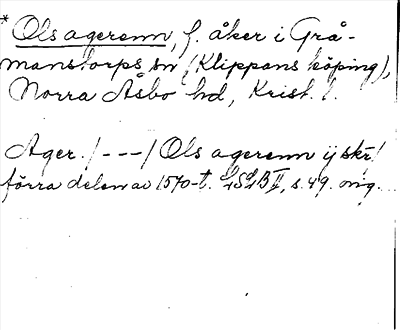 * Ols agerenn, f. åker i Grå-
manstorps sn (Klippans köping),
Norra Åsbo hd, Krist. l.
Ager. /---/ Ols agerenn ij skr!
förra delen av 1570-t. LSLB II, s. 49. orig.